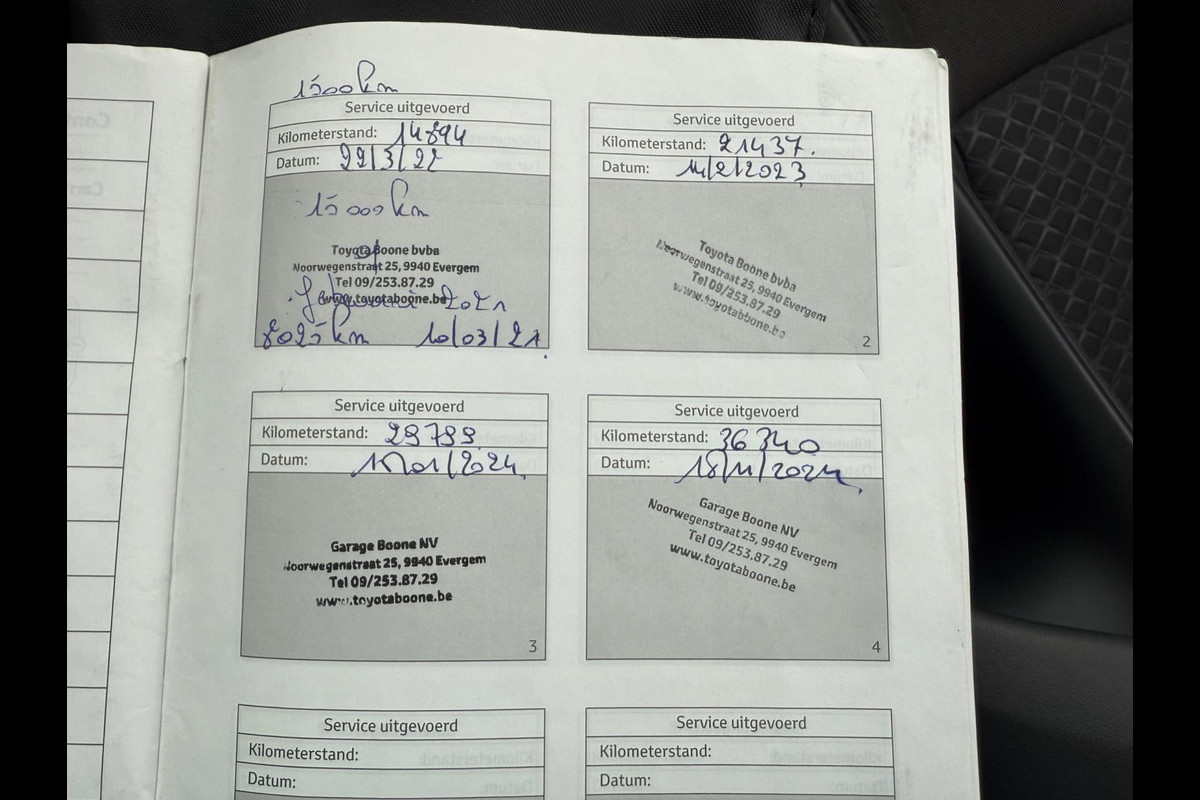 15000 km
Service uitgevoerd
Kilometerstand: 14894
Datum: 22/3/22
15000 km
of
Toyota Boone bvba
Noorwegenstraat 25, 9940 Evergem
Tel 09/253.87.29
www.toyotaboone.be
2021
8025 km 10/03/21
Service uitgevoerd
Kilometerstand: 21437.
Datum: 14/2/2023
Toyota Boone bvba
Noorwegenstraat 25, 9940 Evergem
Tel 09/253.87.29
www.toyotaboone.be
2
Service uitgevoerd
Kilometerstand: 29799
Datum: 15/01/2024
Garage Boone NV
Noorwegenstraat 25, 9940 Evergem
Tel 09/253.87.29
www.toyotaboone.be
3
Service uitgevoerd
Kilometerstand: 36340
Datum: 18/11/2024
Garage Boone NV
Noorwegenstraat 25, 9940 Evergem
Tel 09/253.87.29
www.toyotaboone.be
4
Service uitgevoerd
Kilometerstand:
Datum:
Service uitgevoerd
Kilometerstand:
Datum: